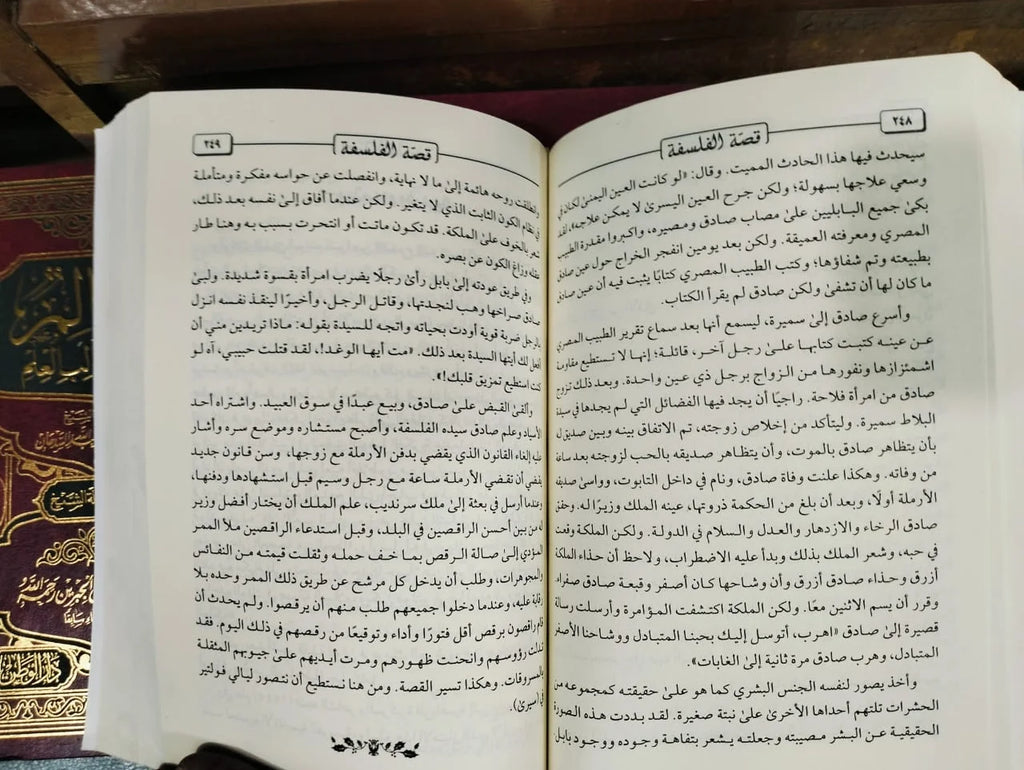 ٢٤٨
قصّة الفلسفة
سيحدث فيها هذا الحادث المميت. وقال: «لو كانت العين اليمنىٰ لكان في
وسعي علاجها بسهولة؛ ولكن جرح العين اليسرىٰ لا يمكن علاجه»، لقد
بكىٰ جميع البابليين علىٰ مصاب صادق ومصيره، واكبروا مقدرة الطبيب
المصري ومعرفته العميقة. ولكن بعد يومين انفجر الخراج حول عين صادق
بطبيعته وتم شفاؤها؛ وكتب الطبيب المصري كتابًا يثبت فيه أن عين صادق
ما كان لها أن تشفىٰ ولكن صادق لم يقرأ الكتاب.
وأسرع صادق إلىٰ سميرة، ليسمع أنها بعد سماع تقرير الطبيب المصري
عن عينه كتبت كتابها علىٰ رجل آخر، قائلة؛ إنها لا تستطيع مقاومة
اشمئزازها ونفورها من الزواج برجل ذي عين واحدة. وبعد ذلك تزوج
صادق من امرأة فلاحة. راجيًا أن يجد فيها الفضائل التي لم يجدها في سيدة
البلاط سميرة. وليتأكد من إخلاص زوجته، تم الاتفاق بينه وبين صديق له
بأن يتظاهر صادق بالموت، وأن يتظاهر صديقه بالحب لزوجته بعد ساعة
من وفاته. وهكذا علنت وفاة صادق، ونام في داخل التابوت، وواسىٰ صديقه
الأرملة أولًا، وبعد أن بلغ من الحكمة ذروتها، عينه الملك وزيرًا له. وحقق
صادق الرخاء والازدهار والعدل والسلام في الدولة. ولكن الملكة وقعت
في حبه، وشعر الملك بذلك وبدأ عليه الاضطراب، ولاحظ أن حذاء الملكة
أزرق وحذاء صادق أزرق وأن وشاحها كان أصفر وقبعة صادق صفراء.
وقرر أن يسم الاثنين معًا. ولكن الملكة اكتشفت المؤامرة وأرسلت رسالة
قصيرة إلىٰ صادق «اهرب، أتوسل إليك بحبنا المتبادل ووشاحنا الأصفر
المتبادل، وهرب صادق مرة ثانية إلىٰ الغابات».
وأخذ يصور لنفسه الجنس البشري كما هو علىٰ حقيقته كمجموعه من
الحشرات تلتهم أحداها الأخرىٰ علىٰ نبتة صغيرة. لقد بددت هذه الصورة
الحقيقية عن البشر مصيبته وجعلته يشعر بتفاهة وجوده ووجود بابل.
٢٤٩
قصّة الفلسفة
وانطلقت روحه هائمة إلىٰ ما لا نهاية، وانفصلت عن حواسه مفكرة ومتأملة
في نظام الكون الثابت الذي لا يتغير. ولكن عندما أفاق إلىٰ نفسه بعد ذلك،
شعر بالخوف علىٰ الملكة. قد تكون ماتت أو انتحرت بسبب به وهنا طار
عقله وزاغ الكون عن بصره.
وفي طريق عودته إلىٰ بابل رأىٰ رجلًا يضرب امرأة بقسوة شديدة. ولبىٰ
صادق صراخها وهب لنجدتها، وقاتل الرجل، وأخيرًا لينقذ نفسه انزل
بالرجل ضربة قوية أودت بحياته واتجه للسيدة بقوله: ماذا تريدين مني أن
افعل لك أيتها السيدة بعد ذلك. «مت أيها الوغد!، لقد قتلت حبيبي، آه لو
كنت استطيع تمزيق قلبك!».
وألقىٰ القبض علىٰ صادق، وبيع عبدًا في سوق العبيد. واشتراه أحد
الأسياد وعلم صادق سيده الفلسفة، وأصبح مستشاره وموضع سره وأشار
عليه إلغاء القانون الذي يقضي بدفن الأرملة مع زوجها، وسن قانون جديد
يقضي أن تقضي الأرملة ساعة مع رجل وسيم قبل استشهادها ودفنها،
وعندما أرسل في بعثة إلىٰ ملك سرنديب، علم الملك أن يختار أفضل وزير
له من بين أحسن الراقصين في البلد، وقبل استدعاء الراقصين ملأ الممر
المؤدي إلىٰ صالة الرقص بما خف حمله وثقلت قيمته من النفائس
والمجوهرات، وطلب أن يدخل كل مرشح عن طريق ذلك الممر وحده بلا
رقابة عليه، وعندما دخلوا جميعهم طلب منهم أن يرقصوا. ولم يحدث أن
قام راقصون برقص أقل فتورًا وأداء وتوقيعًا من رقصهم في ذلك اليوم. فقد
تدلت رؤوسهم وانحنت ظهورهم ومرت أيديهم علىٰ جيوبهم المثقلة
بالمسروقات. وهكذا تسير القصة. ومن هنا نستطيع أن نتصور ليالي فولتير
في (سيرىٰ).
العلم
دار الوطن